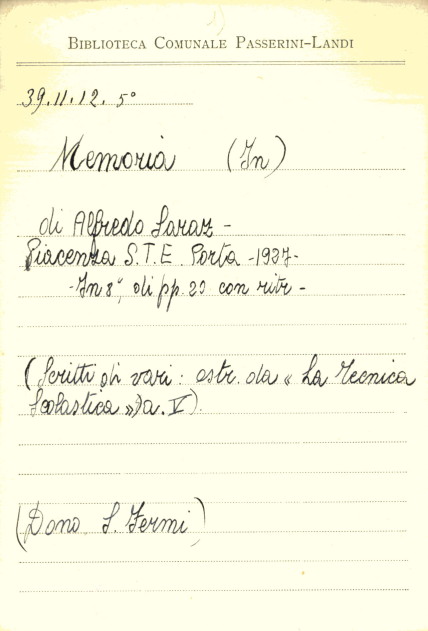 BIBLIOTECA COMUNALE PASSERINI-LANDI
39.11.12.5°
Memoria (In)
di Alfredo Saraz -
Piacenza S.T.E. Porta -1937-
-In 8°, di pp. 20 con ritr -
(Scritti di vari: estr. da « La Tecnica
Scolastica » a. V).
(Dono S. Fermi)